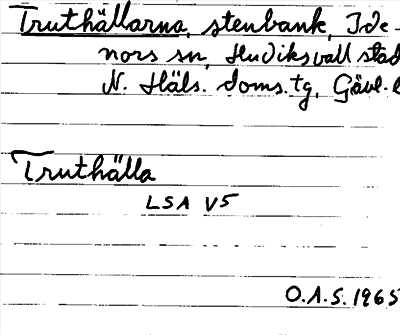 Truthällarna, stenbank, Ide-
nors sn, Hudiksvall stad
N. Häls. doms. tg, Gävl. l
Truthälla
LSA V5
O.A.S. 1965